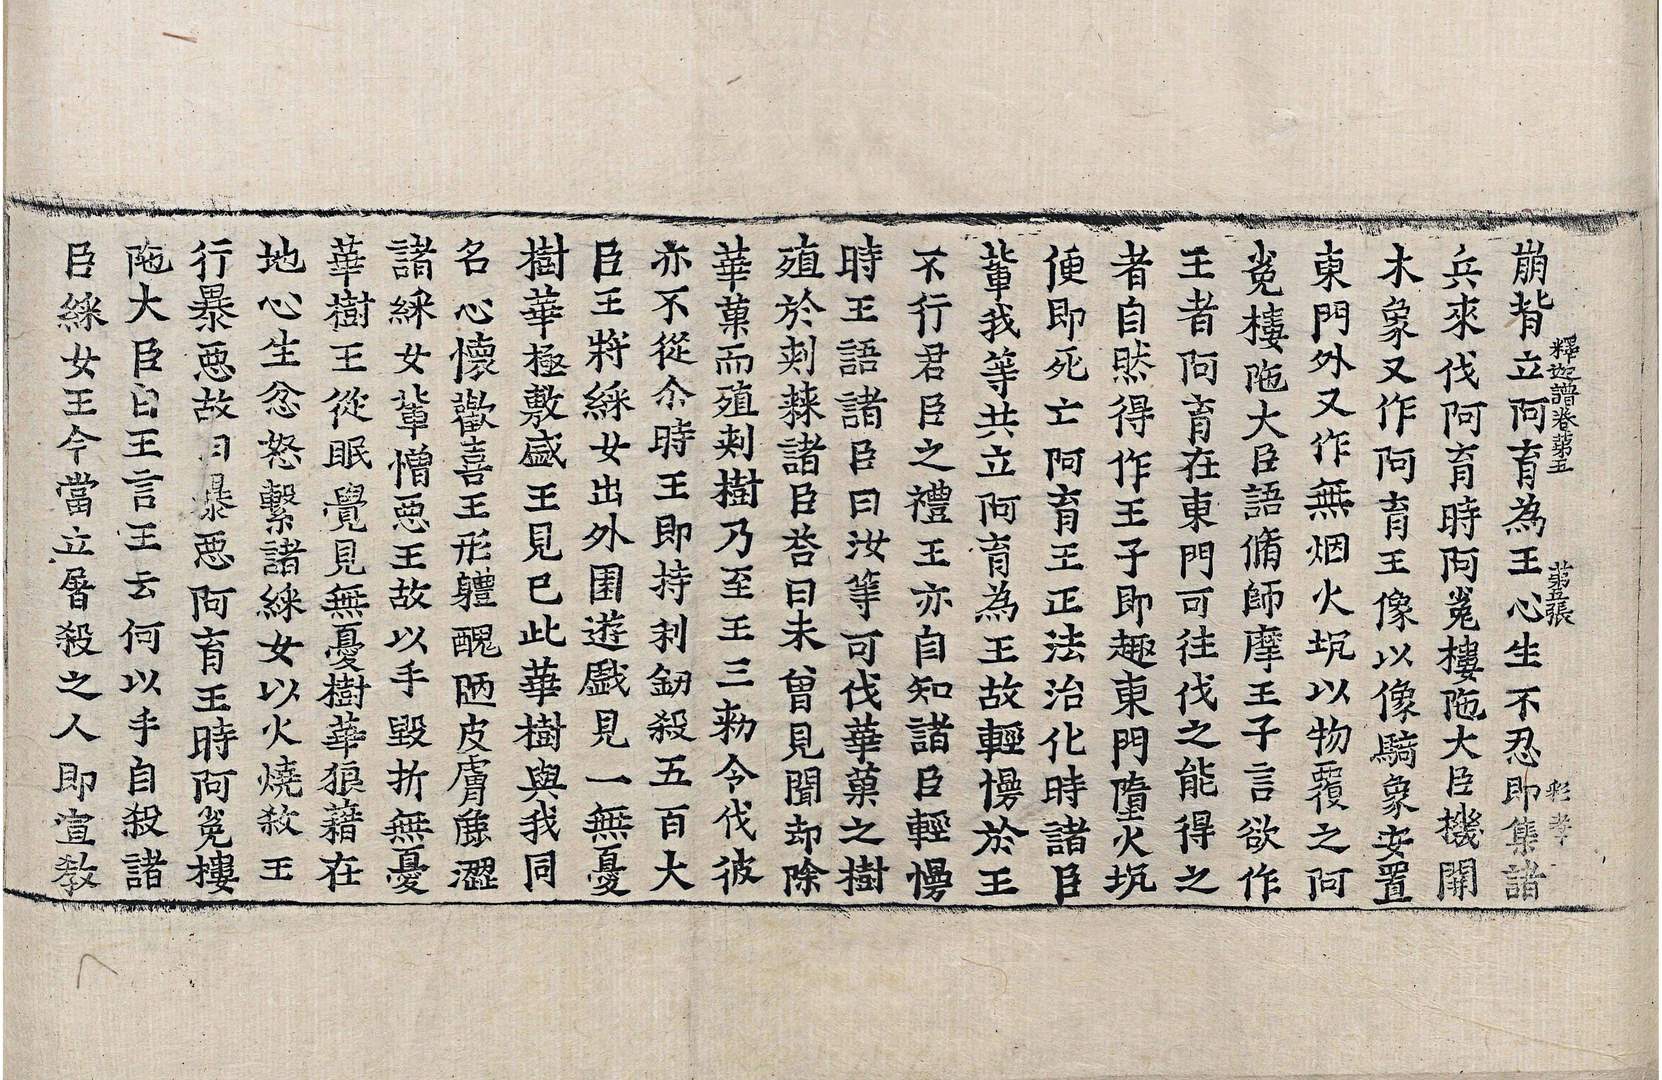 釋迦譜卷第五　第五張　彩　孝
崩背立阿育為王心生不忍即集諸
兵來伐阿育時阿㝹樓陁大臣機關
木象又作阿育王像以像騎象安置
東門外又作無烟火坑以物覆之阿
㝹樓陁大臣語脩師摩王子言欲作
王者阿育在東門可往伐之能得之
者自然得作王子即趣東門墮火坑
便即死亡阿育王正法治化時諸臣
輩我等共立阿育為王故輕慢於王
不行君臣之禮王亦自知諸臣輕慢
時王語諸臣曰汝等可伐華菓之樹
殖於刾棘諸臣荅曰未曾見聞却除
華菓而殖刾樹乃至王三勑令伐彼
亦不從尒時王即持利釰殺五百大
臣王將綵女出外園遊戲見一無憂
樹華極敷盛王見已此華樹與我同
名心懷歡喜王形軆醜陋皮膚麁澀
諸綵女輩憎惡王故以手毀折無憂
華樹王從眠覺見無憂樹華狼藉在
地心生忿怒繫諸綵女以火燒殺王
行暴惡故曰暴惡阿育王時阿㝹樓
陁大臣白王言王云何以手自殺諸
臣綵女王今當立屠殺之人即宣教